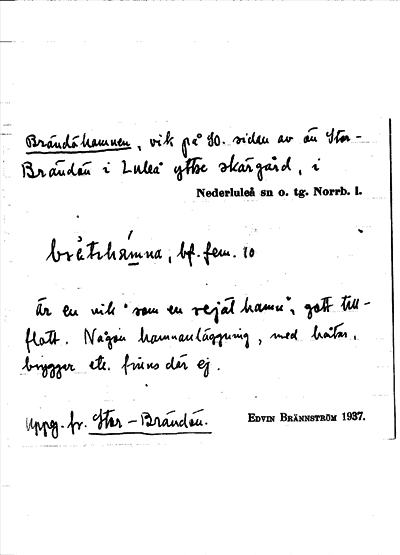 Brändöhamnen, vik på SO. sidan av ön Stor-
Brändön i Luleå yttre skärgård, i
Nederluleå sn o. tg. Norrb. l.
bf. fem.
är en vik "som en rejäl hamn", gott till-
flott. Någon hamnanläggning, med båtar,
bryggor etc. finns där ej.
Uppg. fr. Stor-Brändön.
EDVIN BRÄNNSTRÖM 1937.